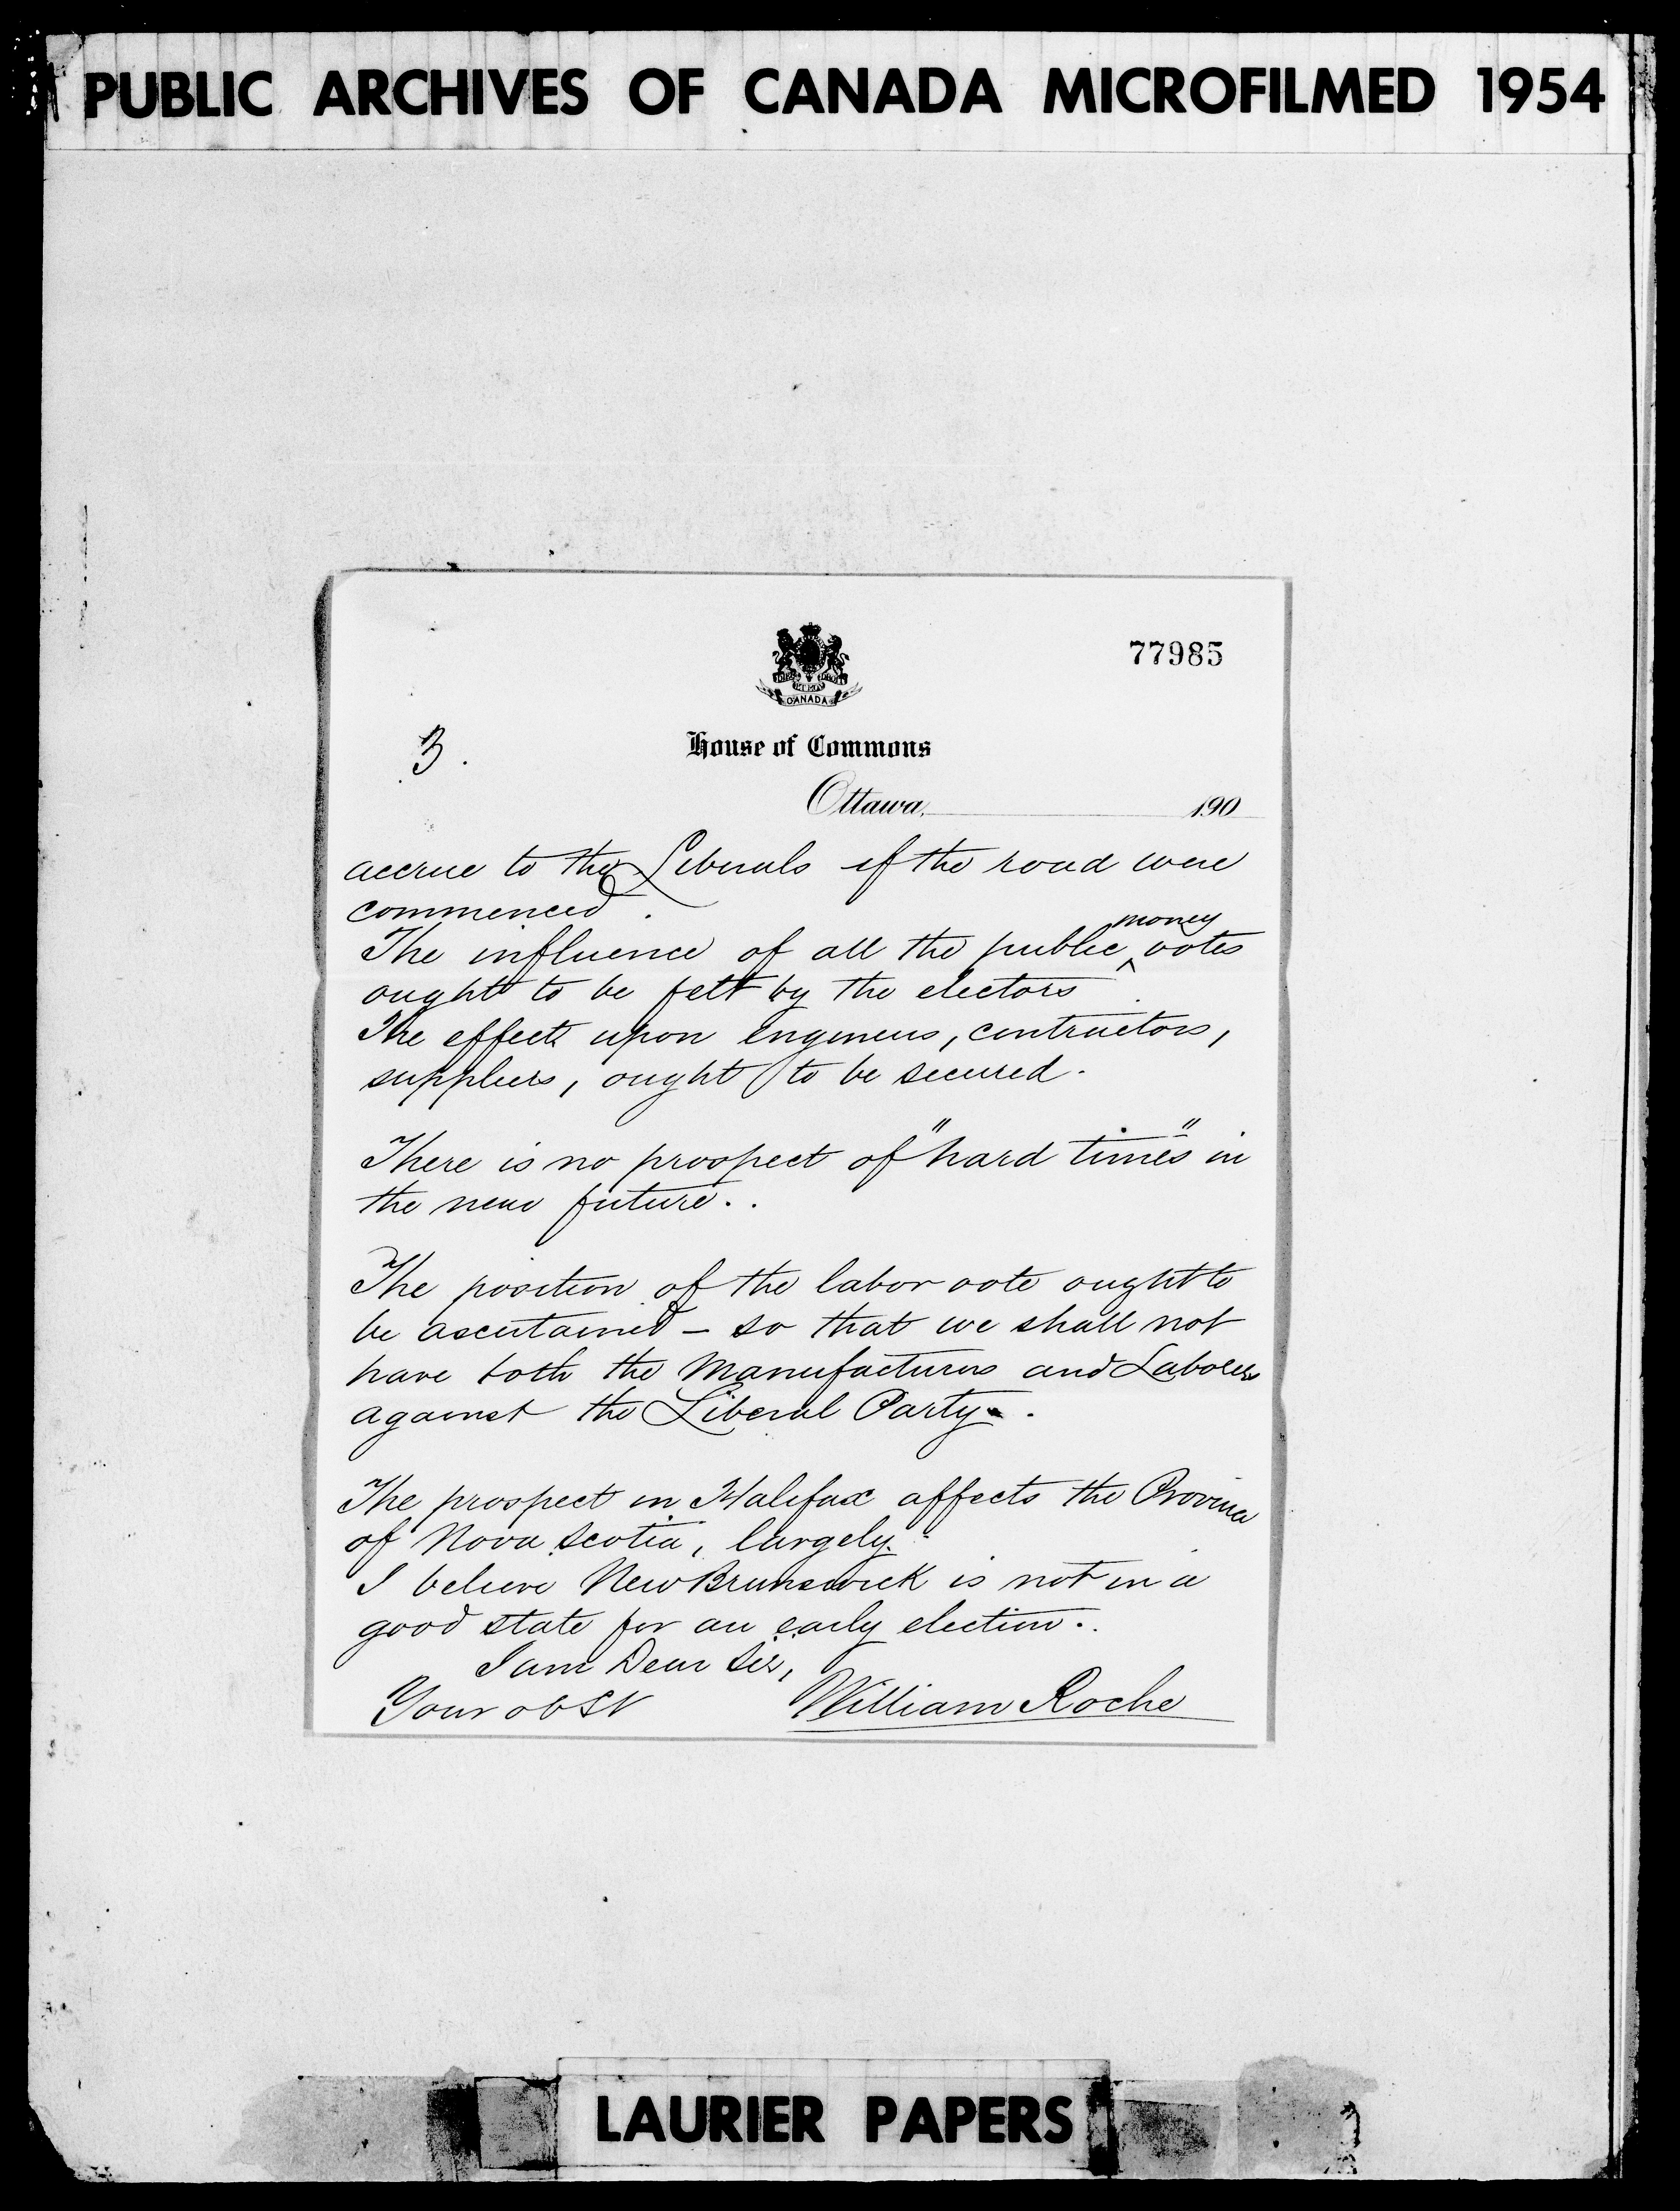 PUBLIC ARCHIVES OF CANADA MICROFILMED 1954
CANADA
77985
3.
House of Commons
Ottawa, 190
accrue to the Liberals if the road were
commenced.
The influence of all the public ^money votes
ought to be felt by the electors.
The effects upon engineers, contractors,
suppliers, ought to be secured.
There is no prospect of "hard times" in
the near future..
The position of the labor vote ought to
be ascertained - so that we shall not
have both the Manufacturers and Laborers
against the Liberal Party.
The prospect in Halifax affects the Province
of Nova Scotia, largely.
I believe New Brunswick is not in a
good state for an early election..
I am Dear Sir,
Your obSt William Roche
LAURIER PAPERS